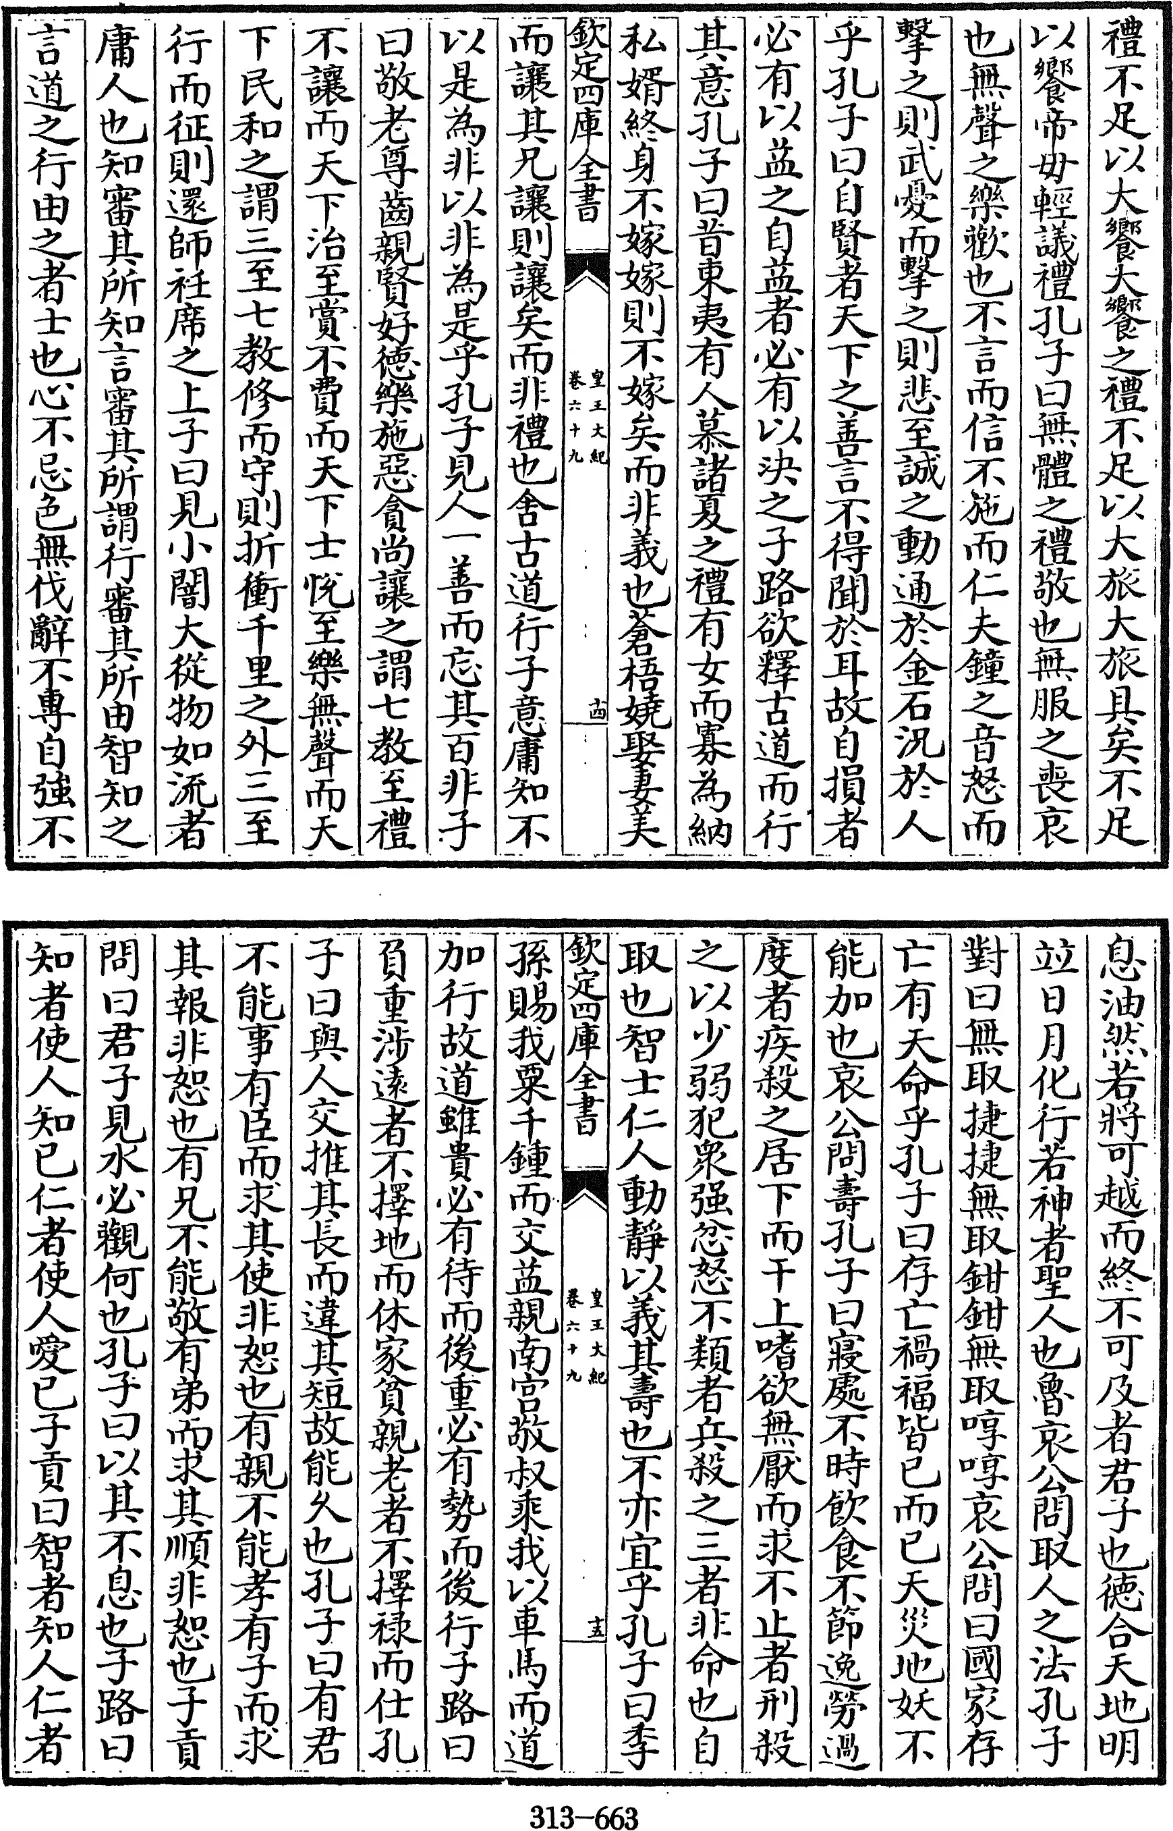 禮不足以大饗大饗之禮不足以大旅大旅具矣不足
以饗帝毋輕議禮孔子曰無體之禮敬也無服之喪哀
也無聲之樂歡也不言而信不施而仁夫鐘之音怒而
擊之則武憂而擊之則悲至誠之動通於金石況於人
乎孔子曰自賢者天下之善言不得聞於耳故自損者
必有以益之自益者必有以決之子路欲釋古道而行
其意孔子曰昔東夷有人慕諸夏之禮有女而寡為納
私婿終身不嫁嫁則不嫁矣而非義也蒼梧嬈娶妻美
欽定四庫全書
皇王大紀
卷六十九
十四
而讓其兄讓則讓矣而非禮也舍古道行子意庸知不
以是為非以非為是乎孔子見人一善而忘其百非子
曰敬老尊齒親賢好德樂施惡貪尚讓之謂七教至禮
不讓而天下治至賞不費而天下士悅至樂無聲而天
下民和之謂三至七教修而守則折衝千里之外三至
行而征則還師衽席之上子曰見小闇大從物如流者
庸人也知審其所知言審其所謂行審其所由智知之
言道之行由之者士也心不忌色無伐辭不專自強不
息油然若將可越而終不可及者君子也德合天地明
竝日月化行若神者聖人也魯哀公問取人之法孔子
對曰無取捷捷無取鉗鉗無取啍啍哀公問曰國家存
亡有天命乎孔子曰存亡禍福皆已而已天災地妖不
能加也哀公問壽孔子曰寢處不時飲食不節逸勞過
度者疾殺之居下而干上嗜欲無厭而求不止者刑殺
之以少弱犯衆强忿怒不類者兵殺之三者非命也自
取也智士仁人動靜以義其壽也不亦宜乎孔子曰季
欽定四庫全書
皇王大紀
卷六十九
十五
孫賜我粟千鍾而交益親南宮敬叔乘我以車馬而道
加行故道雖貴必有待而後重必有勢而後行子路曰
負重涉遠者不擇地而休家貧親老者不擇祿而仕孔
子曰與人交推其長而違其短故能久也孔子曰有君
不能事有臣而求其使非恕也有親不能孝有子而求
其報非恕也有兄不能敬有弟而求其順非恕也子貢
問曰君子見水必觀何也孔子曰以其不息也子路曰
知者使人知已仁者使人愛已子貢曰智者知人仁者
313-663